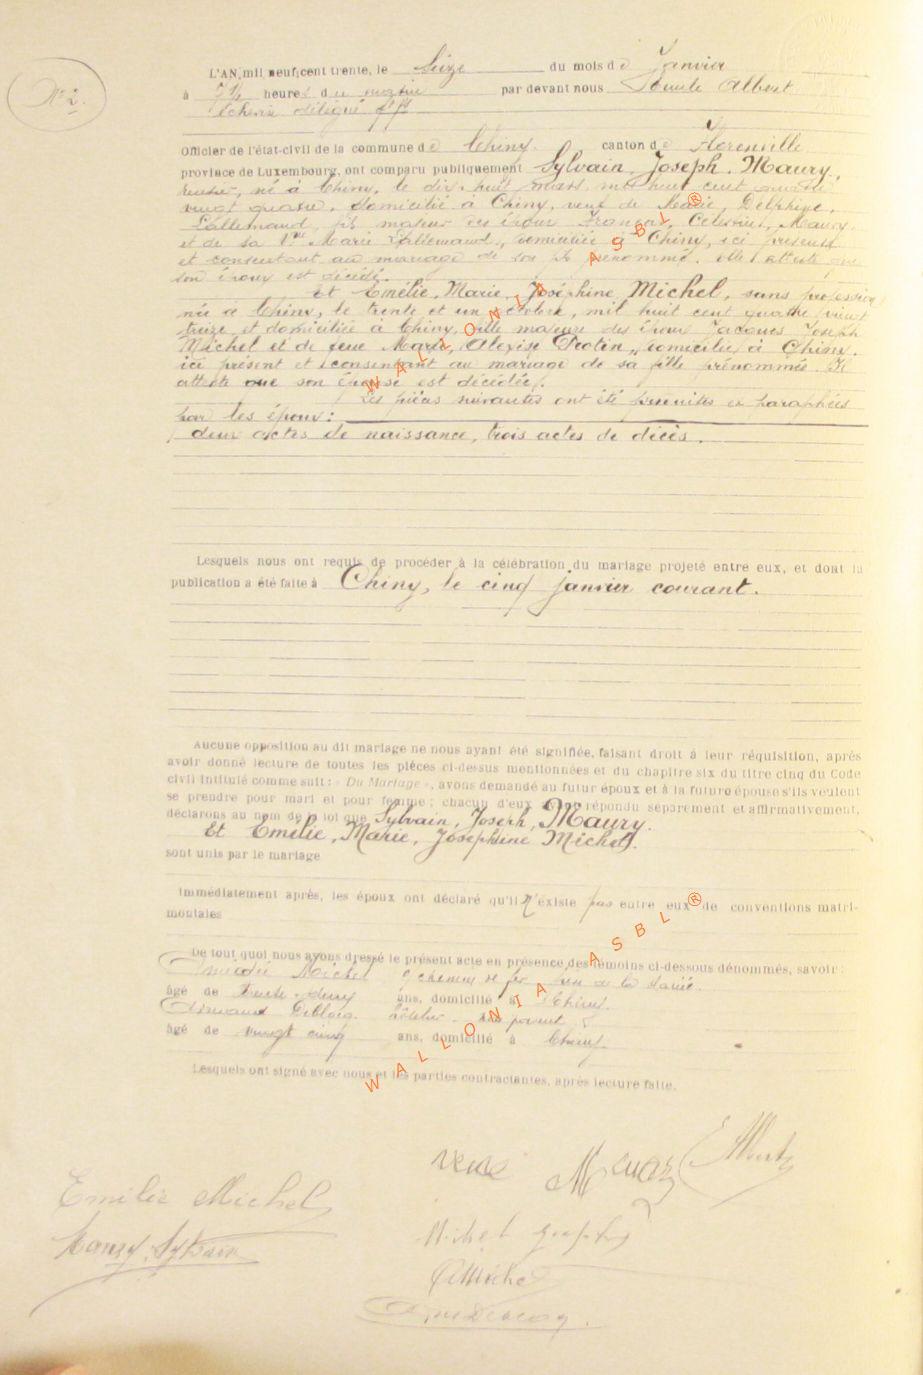 N° 2.
L'AN, mil neuf cent trente, le Seize du mois de Janvier
à heures du matin par devant nous Emile Albert
Echevin délégué
Officier de l'état-civil de la commune de Chiny canton de Florenville
province de Luxembourg, ont comparu publiquement Sylvain, Joseph, Maury,
né à Chiny, le dix-huit mars mil huit cent quatre
vingt quatre, domicilié à Chiny, veuf de Marie, Delphine,
Lallemand, fils majeur des époux François, Célestin, Maury
et de sa Marie Lallemand, domiciliée à Chiny, ici présente
et consentant au mariage de son fils prénommé. Elle atteste que
son époux est décédé.
Et Emélie, Marie, Joséphine Michel, sans profession
née à Chiny, le trente et un octobre, mil huit cent quatre vingt
treize et domiciliée à Chiny, fille majeure des époux Jacques Joseph
Michel et de feue Marie, Alexise Protin, domicilié à Chiny.
ici présent et consentant au mariage de sa fille prénommée. Il
atteste que son épouse est décédée.
Les pièces suivantes ont été produites et paraphées
par les époux :
deux actes de naissance, trois actes de décès.
Lesquels nous ont requis de procéder à la célébration du mariage projeté entre eux, et dont la
publication a été faite à Chiny, le cinq janvier courant.
Aucune opposition au dit mariage ne nous ayant été signifiée, faisant droit à leur réquisition, après
avoir donné lecture de toutes les pièces ci-dessus mentionnées et du chapitre six du titre cinq du Code
civil intitulé comme suit : « Du Mariage », avons demandé au futur époux et à la future épouse s'ils veulent
se prendre pour mari et pour femme ; chacun d'eux ayant répondu séparement et affirmativement,
déclarons au nom de la loi que Sylvain, Joseph, Maury.
Et Emélie, Marie, Joséphine Michel.
sont unis par le mariage
Immédiatement après, les époux ont déclaré qu'il n'existe pas entre eux de conventions matri-
moniales
De tout quoi nous avons dressé le présent acte en présence des témoins ci-dessous dénommés, savoir :
Michel chemin de fer
âgé de trente-deux ans, domicilié à Chiny.
âgé de vingt cinq ans, domicilié à Chiny.
Lesquels ont signé avec nous et les parties contractantes, après lecture faite.
WALLONIA ASBL®
WALLONIA ASBL®
veuve Maury EAlbert
Emilie Michel
Michel Joseph
Maury Sylvain
AMichel